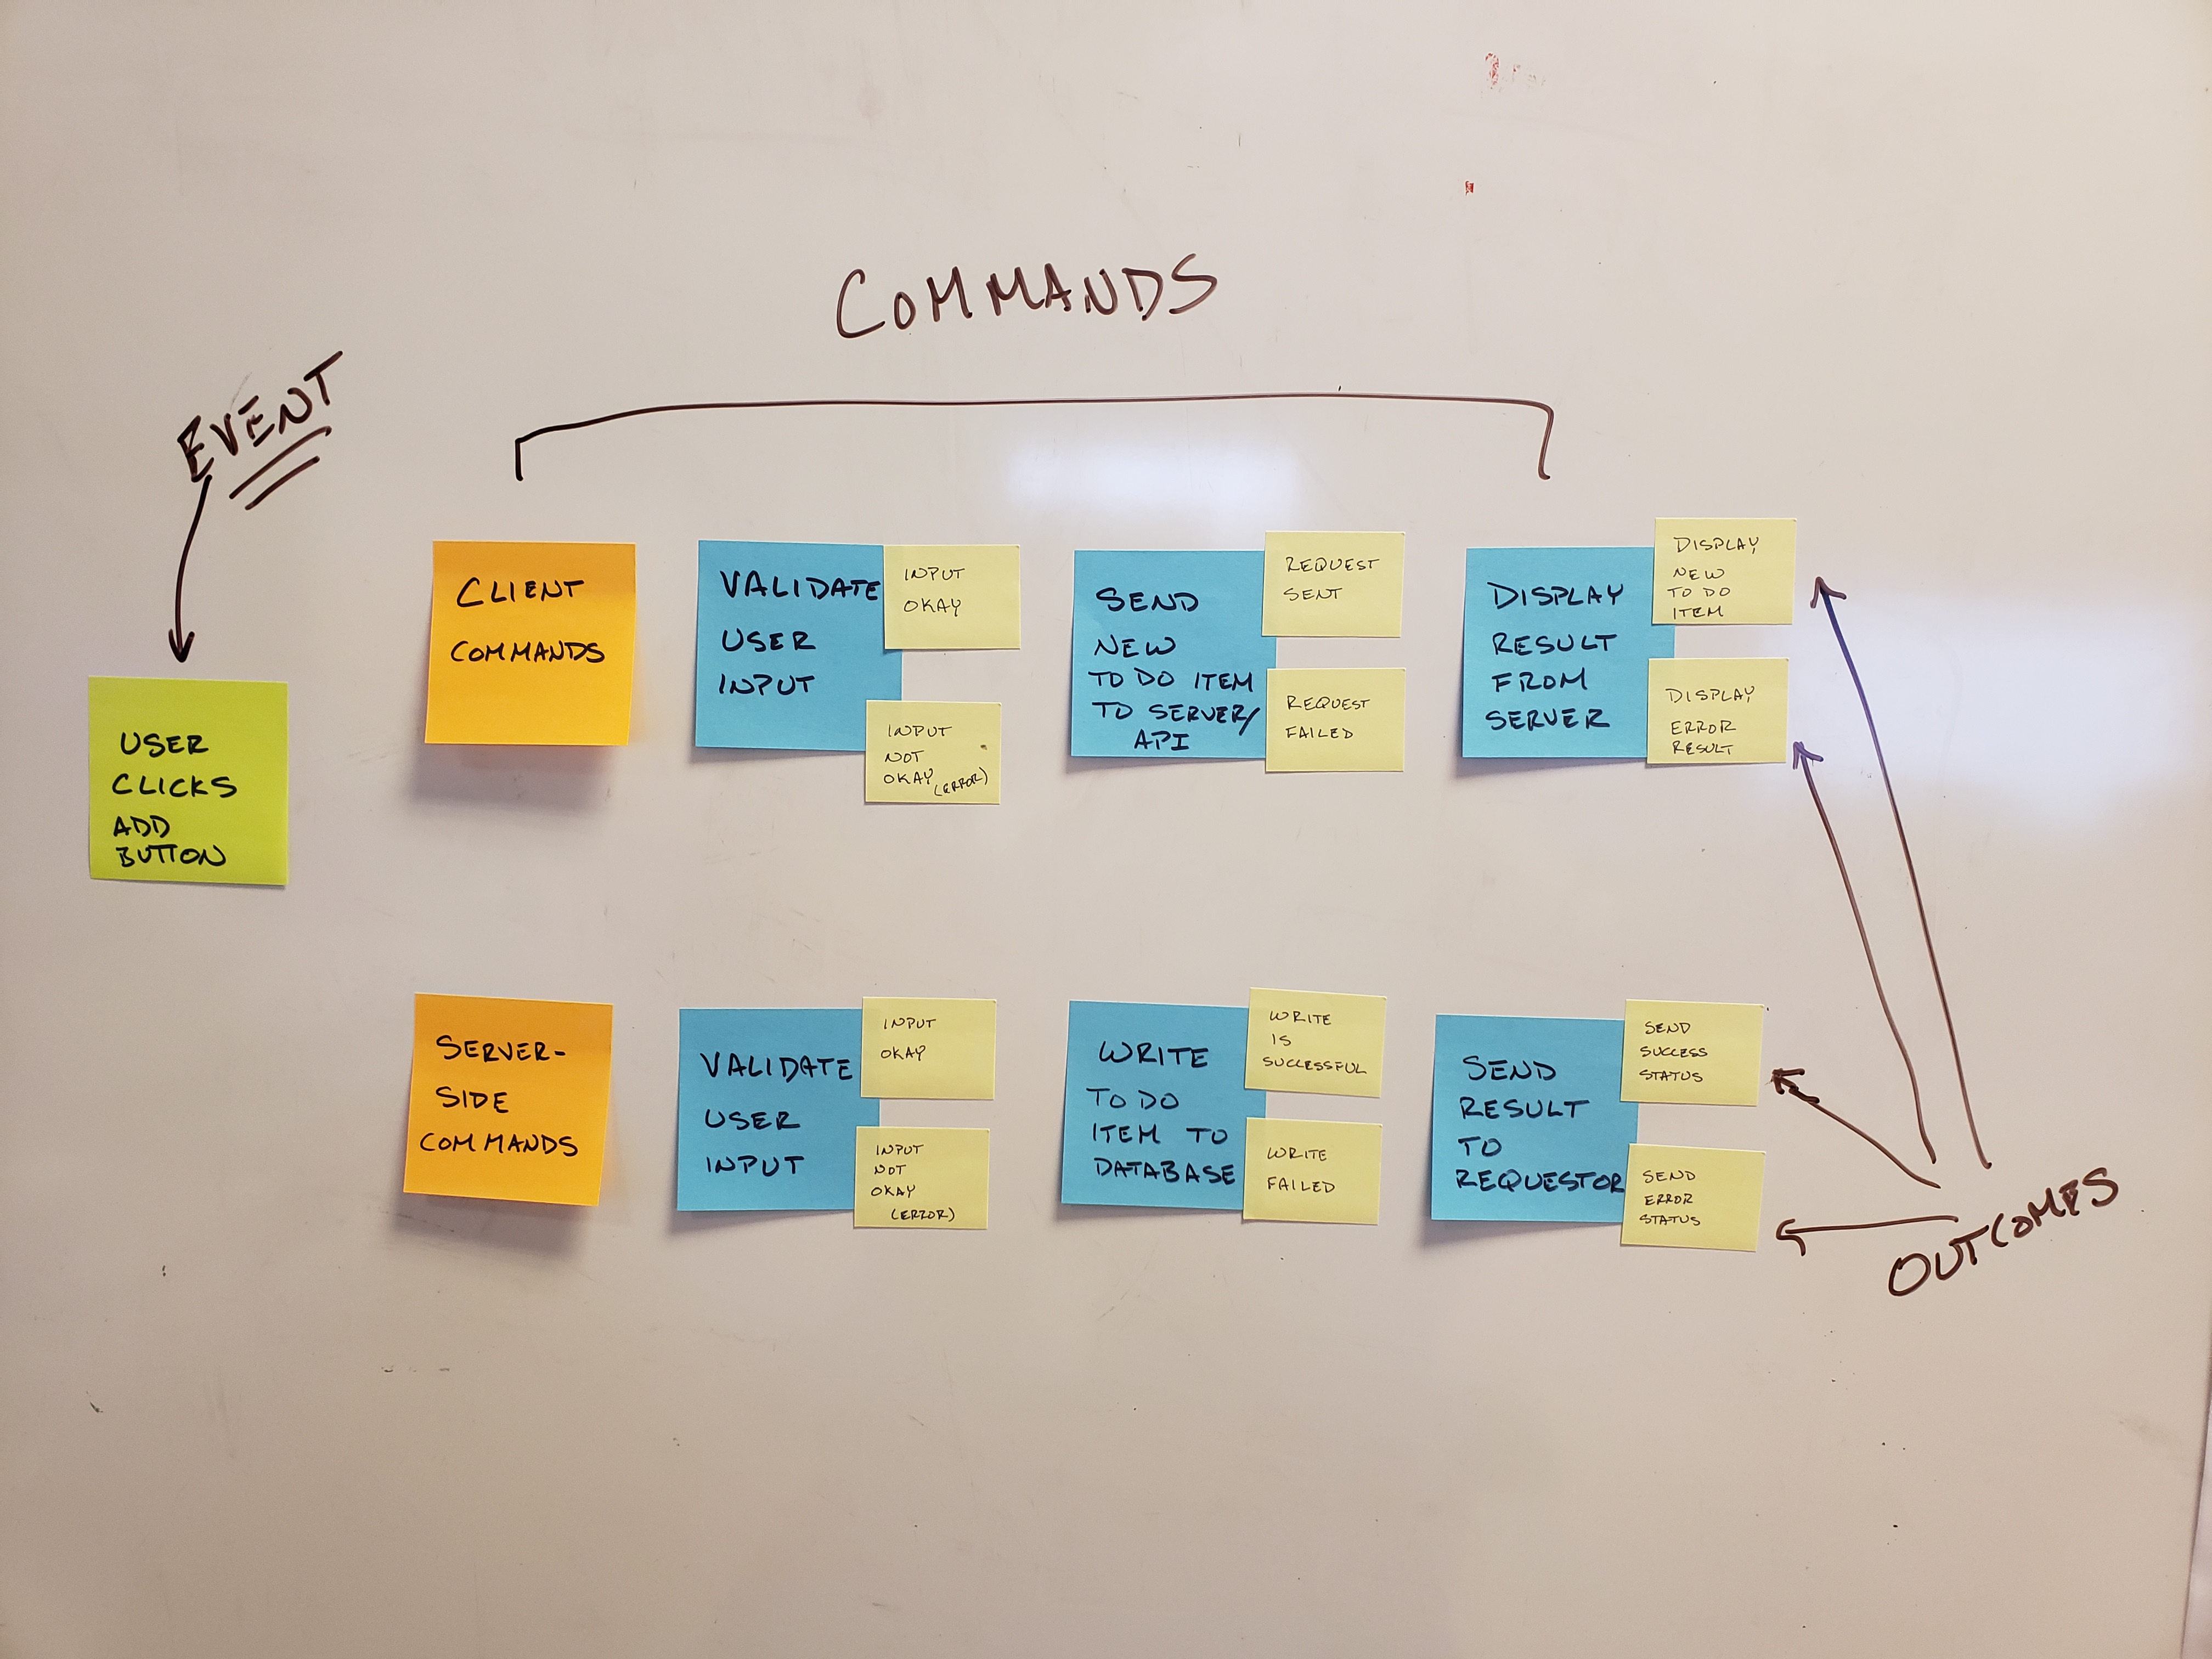 COMMANDS
EVENT
USER
CLICKS
ADD
BUTTON
CLIENT
COMMANDS
VALIDATE
USER
INPUT
INPUT
OKAY
INPUT
NOT
OKAY (ERROR)
SEND
NEW
TO DO ITEM
TO SERVER/
API
REQUEST
SENT
REQUEST
FAILED
DISPLAY
RESULT
FROM
SERVER
DISPLAY
NEW
TO DO
ITEM
DISPLAY
ERROR
RESULT
SERVER-
SIDE
COMMANDS
VALIDATE
USER
INPUT
INPUT
OKAY
INPUT
NOT
OKAY
(ERROR)
WRITE
TO DO
ITEM TO
DATABASE
WRITE
IS
SUCCESSFUL
WRITE
FAILED
SEND
RESULT
TO
REQUESTOR
SEND
SUCCESS
STATUS
SEND
ERROR
STATUS
OUTCOMES